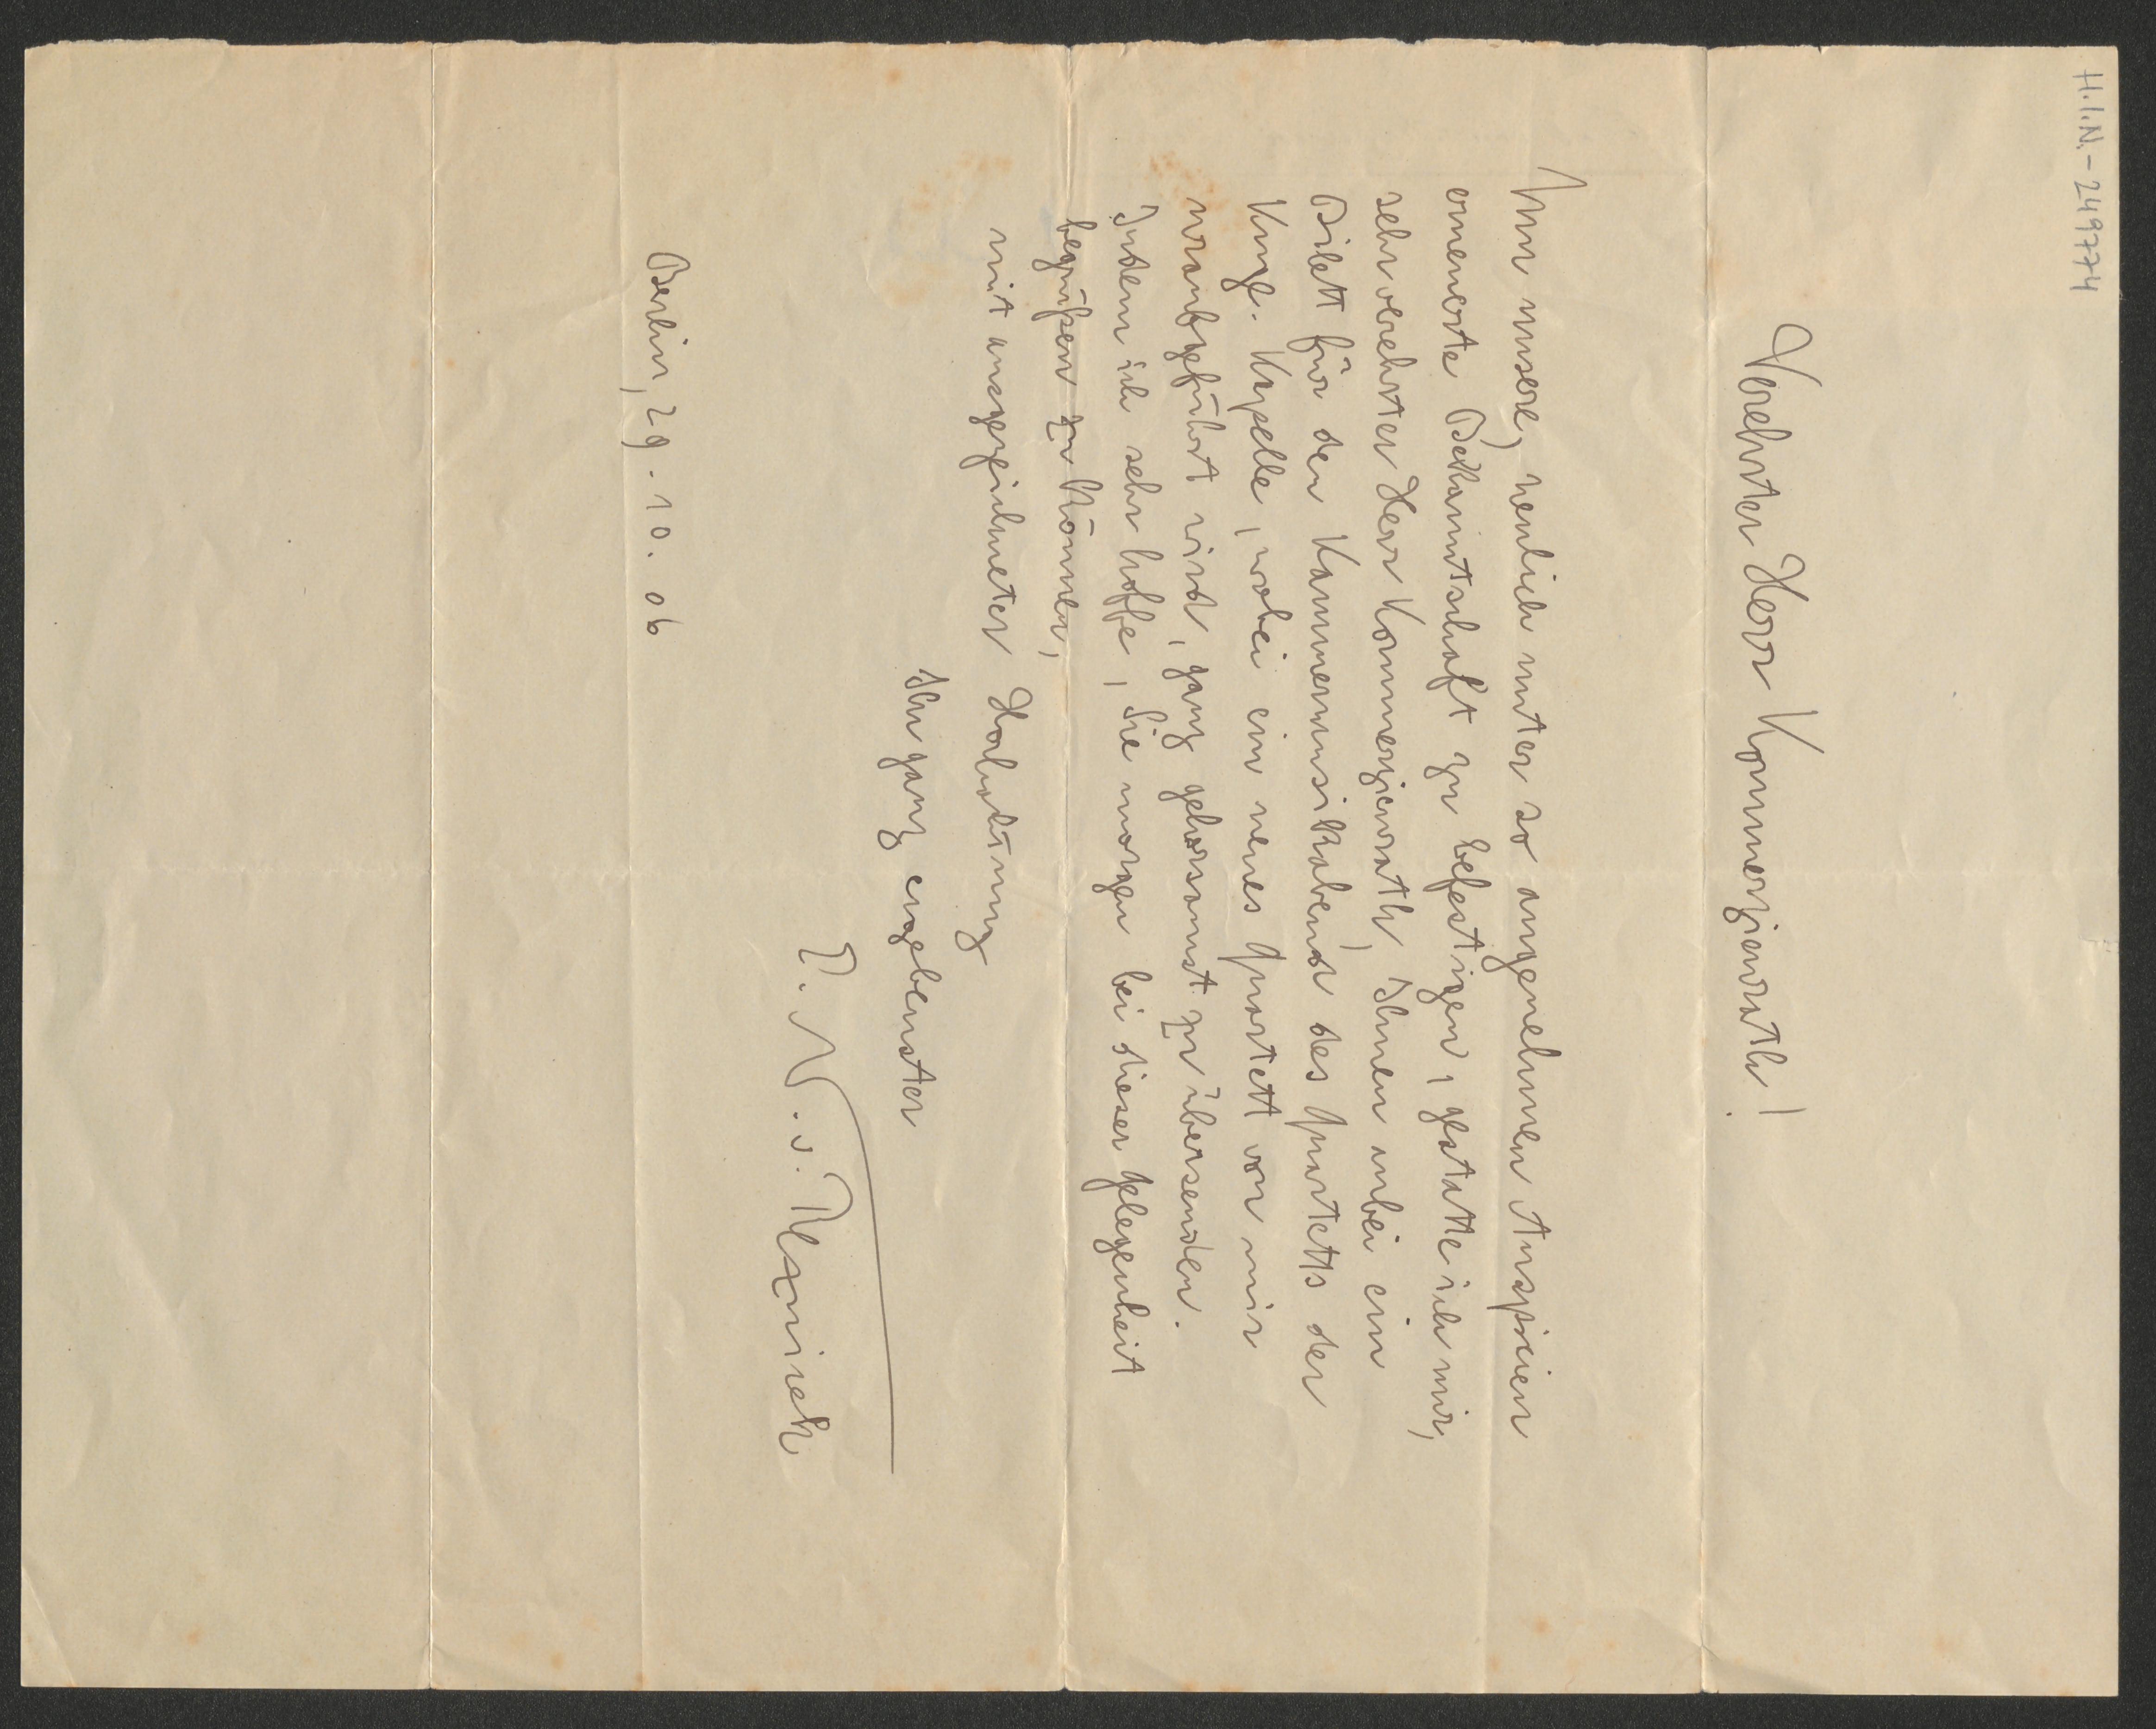 H.I.N.-249774
Verehrter Herr Kommerzienrath!
Um unsere, neulich unter so angenehmen Auspicien
erneuerte Bekanntschaft zu befestigen, gestatte ich mir,
sehr verehrter Herr Kommerzienrath, Ihnen anbei ein
Billett für den Kammermusikabend des Quartetts der
Königl. Kapelle, wobei ein neues Quartett von mir
uraufgeführt wird, ganz gehorsamst zu übersenden.
Indem ich sehr hoffe, Sie morgen bei dieser Gelegenheit
begrüßen zu können,
mit ausgezeichneter Hochachtung
Ihr ganz ergebenster
E. N. v. Reznicek
Berlin, 29. 10. 06